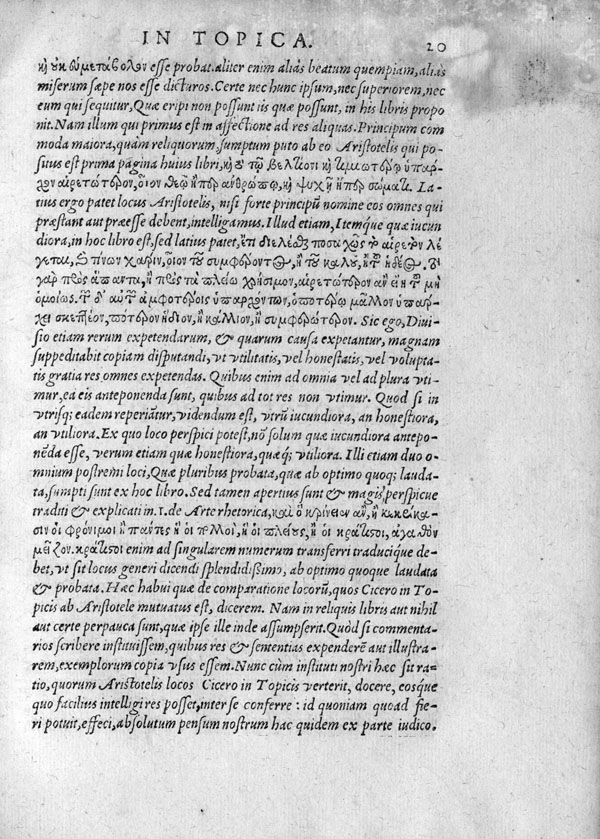 IN TOPICA. 20
κỳ οὐκ εὐμετάβολον esse probat. aliter enim aliàs beatum quempiam, aliàs
miserum sæpe nos esse dicturos. Certe nec hunc ipsum, nec superiorem, nec
eum qui sequitur, Quæ eripi non possunt iis quæ possunt, in his libris propo
nit. Nam illum qui primus est in affectione ad res aliquas. Principum com
moda maiora, quàm reliquorum, sumptum puto ab eo Aristotelis qui po-
situs est prima pagina huius libri, καὶ τῷ βελτίονι καὶ τιμιωτέρῳ ὑπάρ-
χον αἱρετώτερον, οἷον θεῷ ἢ περ ἀνθρώπῳ, καὶ ψυχῇ ἢ περ σώματι. La-
tius ergo patet locus Aristotelis, nisi forte principũ nomine eos omnes qui
præstant aut præesse debent, intelligamus. Illud etiam, Itemq́ue quæ iucun
diora, in hoc libro est, sed latius patet, ἔτι διελέσθαι ποσαχῶς τὸ αἱρετὸν λέ
γεται, καὶ τίνων χάριν, οἷον τοῦ συμφέροντος, ἢ τοῦ καλοῦ, ἢ τοῦ ἡδέος. τὸ
γὰρ πρὸς ἅπαντα, ἢ πρὸς τὰ πλείω χρήσιμον, αἱρετώτερον ἂν εἴη τοῦ μὴ
ὁμοίως. τῶν δ' αὐτῶν ἀμφοτέροις ὑπαρχόντων, ὁποτέρῳ μᾶλλον ὑπάρ-
χει σκεπτέον, πότερον ἥδιον, ἢ κάλλιον, ἢ συμφερώτερον. Sic ego, Diui-
sio etiam rerum expetendarum, & quarum causa expetantur, magnam
suppeditabit copiam disputandi, vt vtilitatis, vel honestatis, vel volupta-
tis gratia res omnes expetendas. Quibus enim ad omnia vel ad plura vti-
mur, ea eis anteponenda sunt, quibus ad tot res non vtimur. Quod si in
vtrisq; eadem reperiãtur, videndum est, vtrũ iucundiora, an honestiora,
an vtiliora. Ex quo loco perspici potest, nõ solum quæ iucundiora antepo-
nẽda esse, verum etiam quæ honestiora, quæq́; vtiliora. Illi etiam duo o-
mnium postremi loci, Quæ pluribus probata, quæ ab optimo quoq; lauda-
ta, sumpti sunt ex hoc libro. Sed tamen apertius sunt & magis perspicue
traditi & explicati in .1. de Arte rhetorica, καὶ ὃ κρίνειαν ἂν, ἢ κεκρίκα-
σιν οἱ φρόνιμοι ἢ πάντες ἢ οἱ πολλοὶ, ἢ οἱ πλείους, ἢ οἱ κράτιστοι, ἀγαθὸν
μεῖζον. κράτιστοι enim ad singularem numerum transferri traducique de-
bet, vt sit locus generi dicendi splendidißimo, ab optimo quoque laudata
& probata. Hæc habui quæ de comparatione locorũ, quos Cicero in To-
picis ab Aristotele mutuatus est, dicerem. Nam in reliquis libris aut nihil
aut certe perpauca sunt, quæ ipse ille inde assumpserit. Quòd si commenta-
rios scribere instituissem, quibus res & sententias expenderẽ aut illustra-
rem, exemplorum copia vsus essem. Nunc cùm instituti nostri hæc sit ra-
tio, quorum Aristotelis locos Cicero in Topicis verterit, docere, eosque
quo facilius intelligi res posset, inter se conferre: id quoniam quoad fie-
ri potuit, effeci, absolutum pensum nostrum hac quidem ex parte iudico.